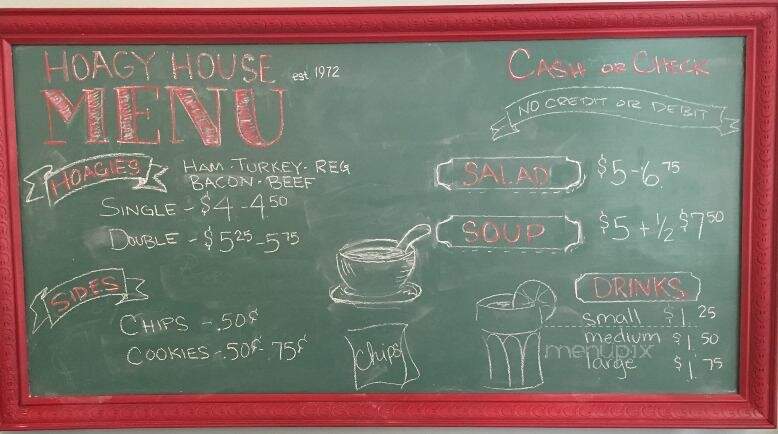 HOAGY HOUSE est 1972
MENU
CASH OR CHECK
NO CREDIT OR DEBIT
HOAGIES
HAM-TURKEY-REG
BACON-BEEF
SINGLE - $4 - 4.50
DOUBLE - $5.25 - 5.75
SALAD $5-6.75
SOUP $5 + 1/2 $7.50
SIDES
CHIPS - .50¢
COOKIES - .50¢ - .75¢
Chips
DRINKS
small $1.25
medium $1.50
large $1.75
menupix